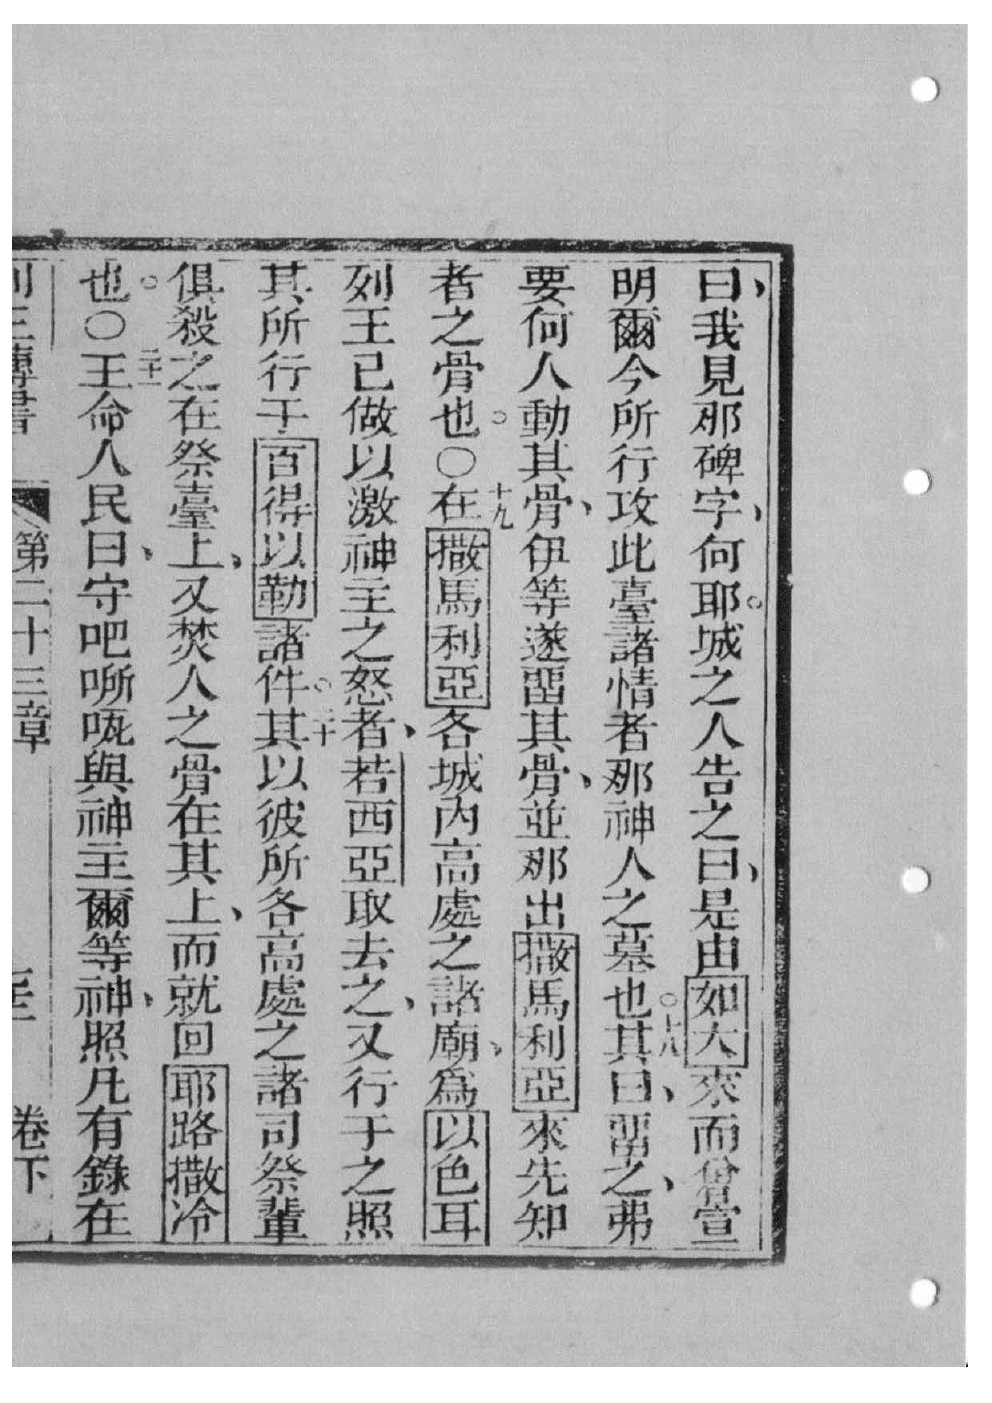 曰、我見那碑字、何耶。城之人告之曰、是由如大來而曾宣
明爾今所行攻此臺諸情者那神人之墓也。十八其曰、畱之、弗
要何人動其骨、伊等遂畱其骨、並那出撒馬利亞來先知
者之骨也。〇十九在撒馬利亞各城內高處之諸廟、爲以色耳
列王已做以激神主之怒者、若西亞取去之、又行于之照
其所行于百得以勒諸件。二十其以彼所各高處之諸司祭輩
俱殺之在祭臺上、又焚人之骨在其上、而就回耶路撒冷
也。〇二十一王命人民曰、守吧㗭𠲖與神主爾等神、照凡有錄在
列王傳書 第二十三章 卷下